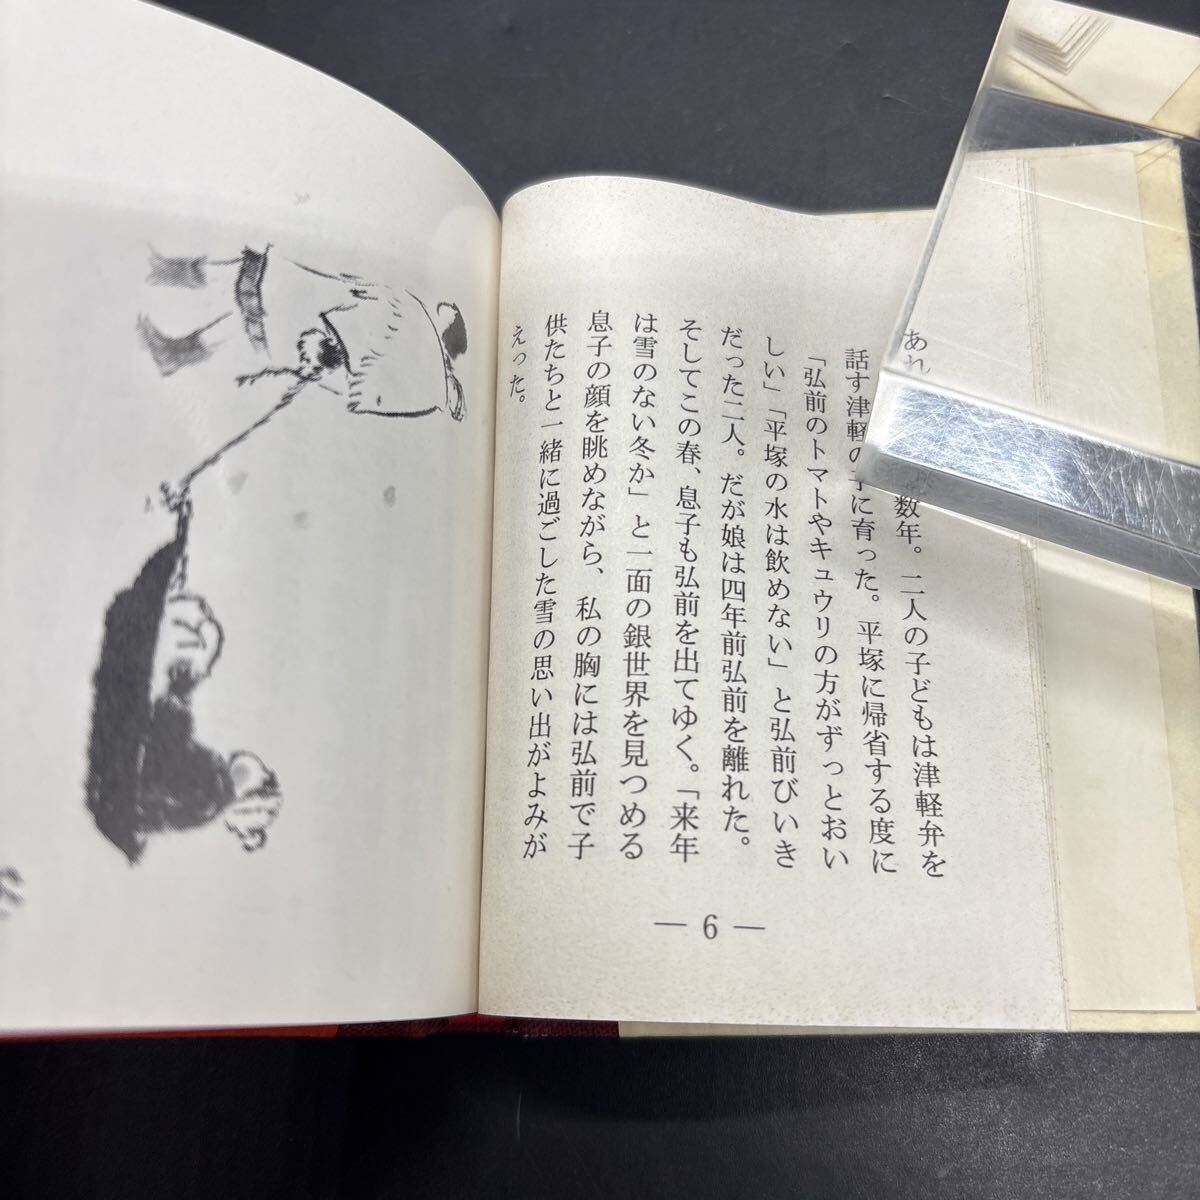 あれ
数年。二人の子どもは津軽弁を
話す津軽の子に育った。平塚に帰省する度に
「弘前のトマトやキュウリの方がずっとおい
しい」「平塚の水は飲めない」と弘前びいき
だった二人。だが娘は四年前弘前を離れた。
そしてこの春、息子も弘前を出てゆく。「来年
は雪のない冬か」と一面の銀世界を見つめる
息子の顔を眺めながら、私の胸には弘前で子
供たちと一緒に過ごした雪の思い出がよみが
えった。
— 6 —